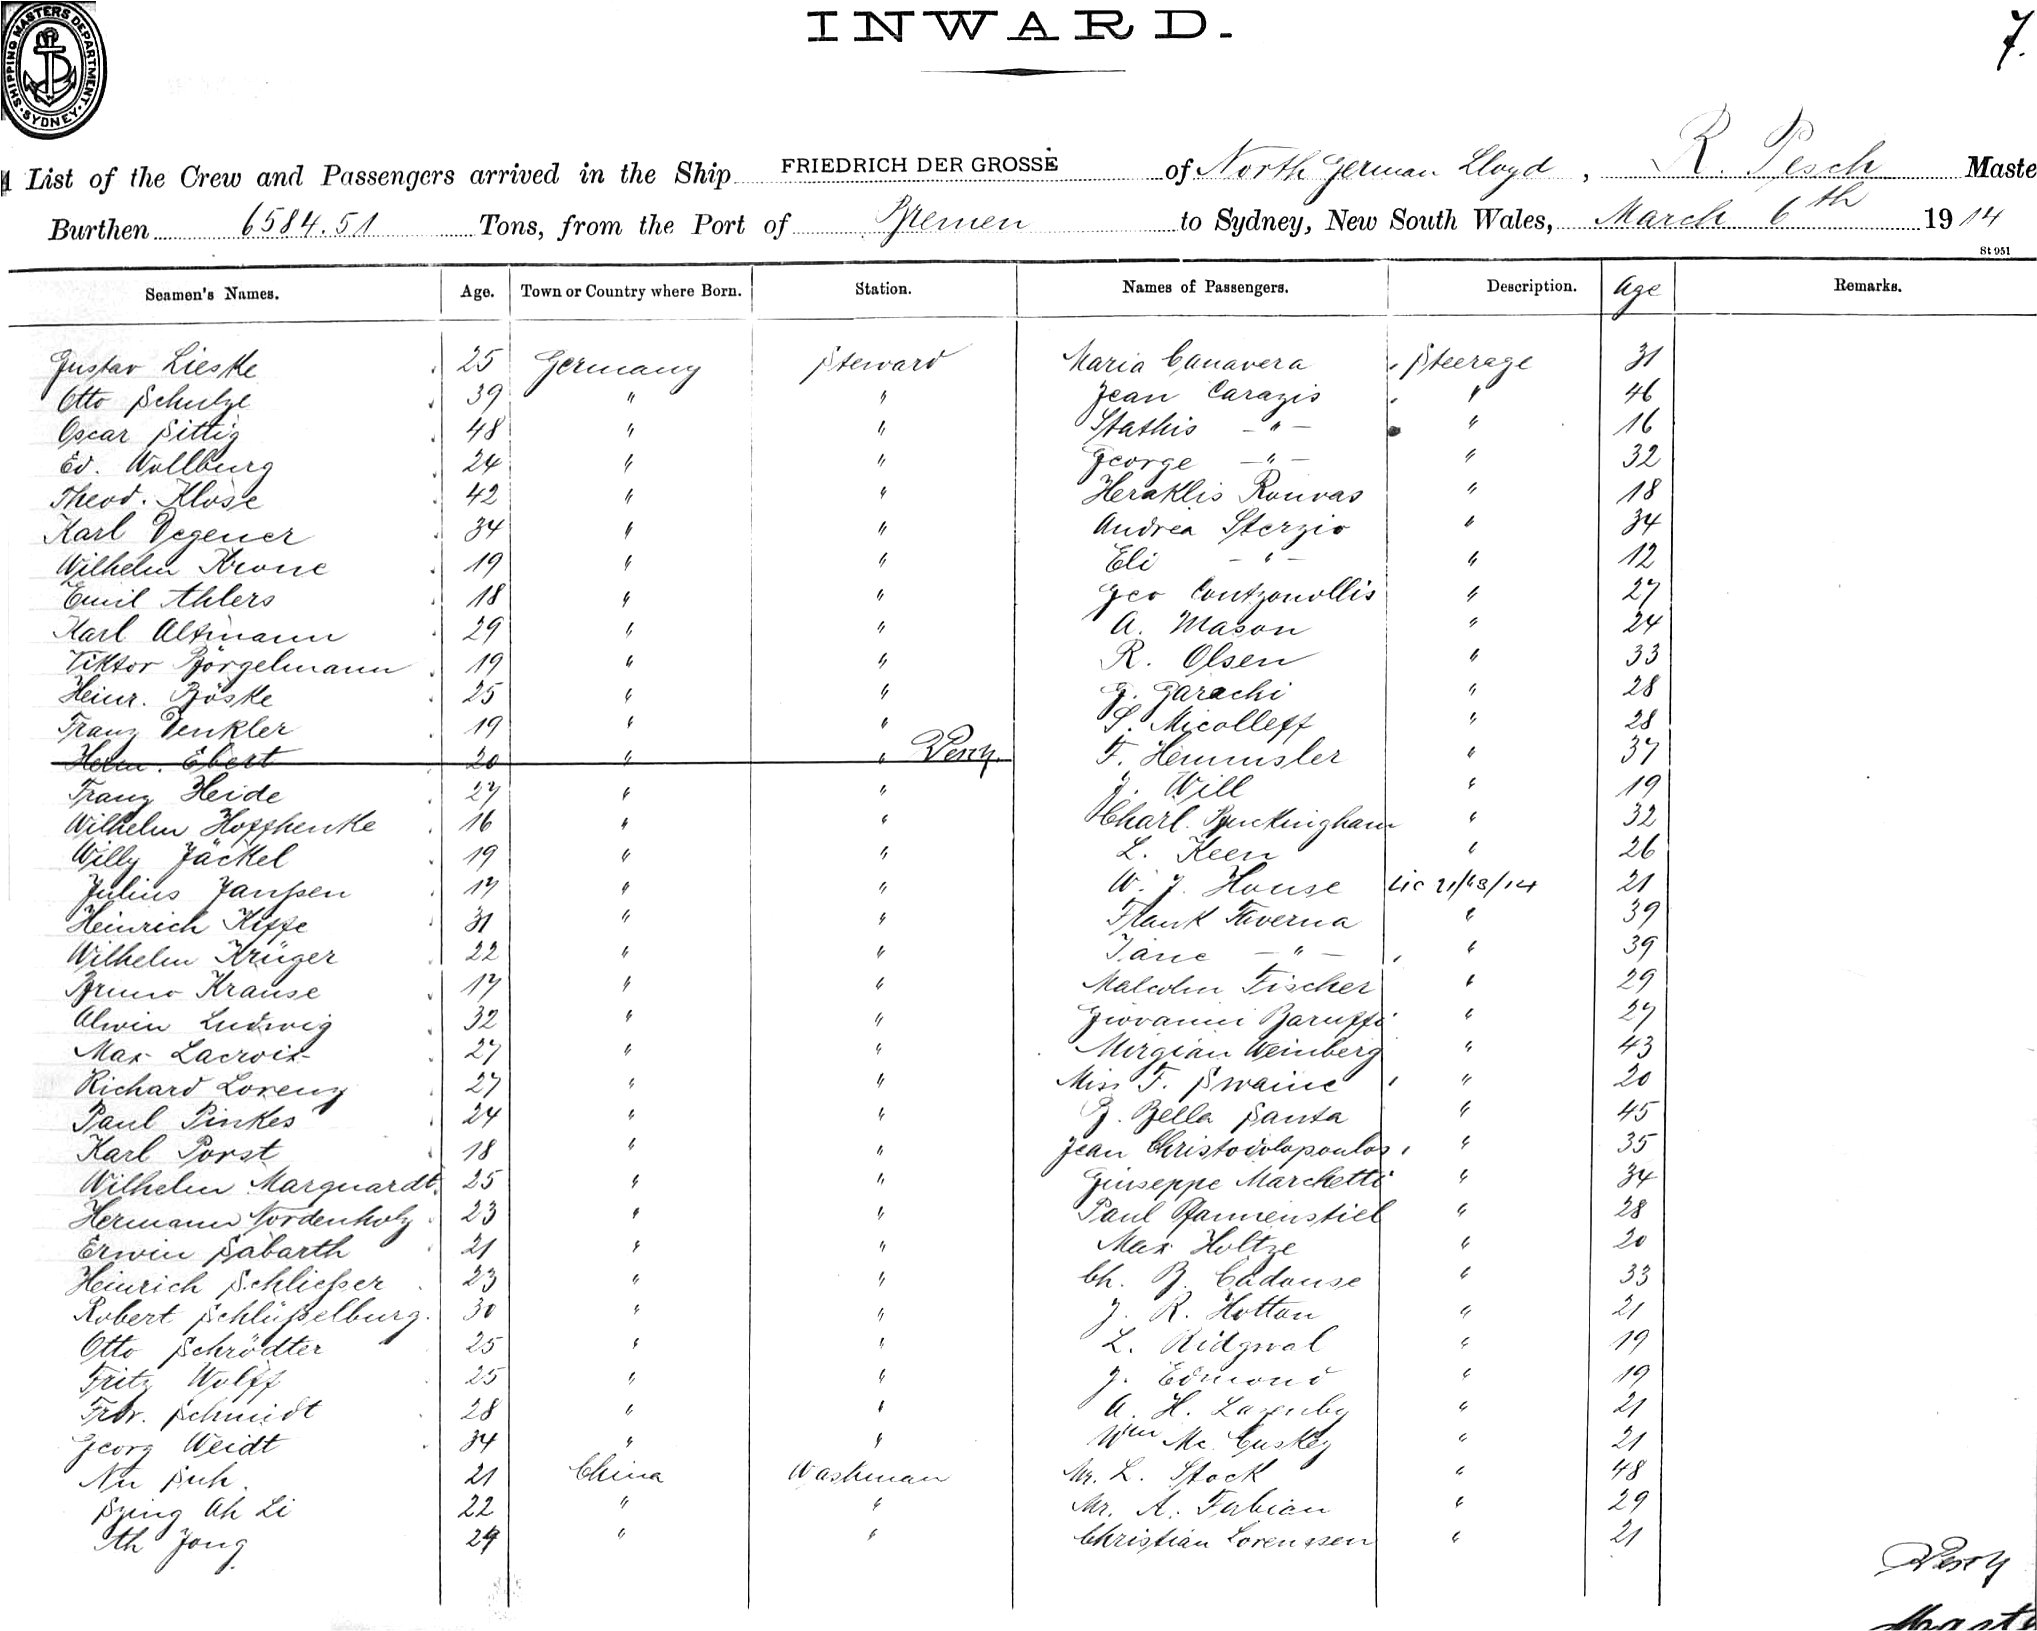 INWARD.
7.
SHIPPING MASTERS DEPARTMENT · SYDNEY ·
List of the Crew and Passengers arrived in the Ship FRIEDRICH DER GROSSE of North German Lloyd, R. Pesch Maste
Burthen 6584.51 Tons, from the Port of Bremen to Sydney, New South Wales, March 6th 1914
St 951
Seamen's Names. Age. Town or Country where Born. Station. Names of Passengers. Description. Age Remarks.
Gustav Lieske 25 Germany Steward Maria Canavera Steerage 31
Otto Schulze 39 " " Jean Carazis " 46
Oscar Sittig 48 " " Stathis -"- " 16
Ed. Wollburg 24 " " George -"- " 32
Theod. Klose 42 " " Heraklis Rouvas " 18
Karl Degener 34 " " Andrea Sterzio " 34
Wilhelm Krone 19 " " Eli -"- " 12
Emil Ahlers 18 " " Geo Contzonollis " 27
Karl Altmann 29 " " A. Mason " 24
Viktor Börgelmann 19 " " R. Olsen " 33
Heinr. Böske 25 " " G. Garachi " 28
Franz Denkler 19 " " S. Micolleff " 28
Herm. Ebert 20 " " Pesch. F. Hemmsler " 37
Franz Heide 27 " " J. Will " 19
Wilhelm Hoffhenke 16 " " Charl. Buckingham " 32
Willy Jäckel 19 " " L. Keen " 26
Julius Janssen 17 " " W. J. House 21
Heinrich Kiffe 31 " " Frank Taverna " 39
Wilhelm Krüger 22 " " Jane -"- " 39
Bruno Krause 17 " " Malcolm Fischer " 29
Alwin Ludwig 32 " " Giovanni Baruffi " 27
Max Lacroix 27 " " Mirgian Weinberg " 43
Richard Lorenz 27 " " Miss F. Swaine " 20
Paul Pinkes 24 " " B. Bella Santa " 45
Karl Porst 18 " " Jean Christodolopoulos " 35
Wilhelm Marquardt 25 " " Giuseppe Marchetti " 34
Hermann Nordenholz 23 " " Paul Pfannenstiel " 28
Erwin Sabarth 21 " " Max Holtze " 20
Heinrich Schließer 23 " " Ch. B. Cadouse " 33
Robert Schlüßelburg. 30 " " J. R. Hottan " 21
Otto Schrödter 25 " " L. Ridgwal " 19
Fritz Wolff 25 " " J. Edmond " 19
Frdr. Schmidt 28 " " A. H. Lazenby " 21
Georg Weidt 34 " " Wm Mc. Cuskey " 21
Nu Suh. 21 China Washman Mr. L. Stock " 48
Szing Ah Li 22 " " Mr. A. Fabian " 29
Ah Jong 29 " " Christian Lorenssen " 21
Pesch
Maste